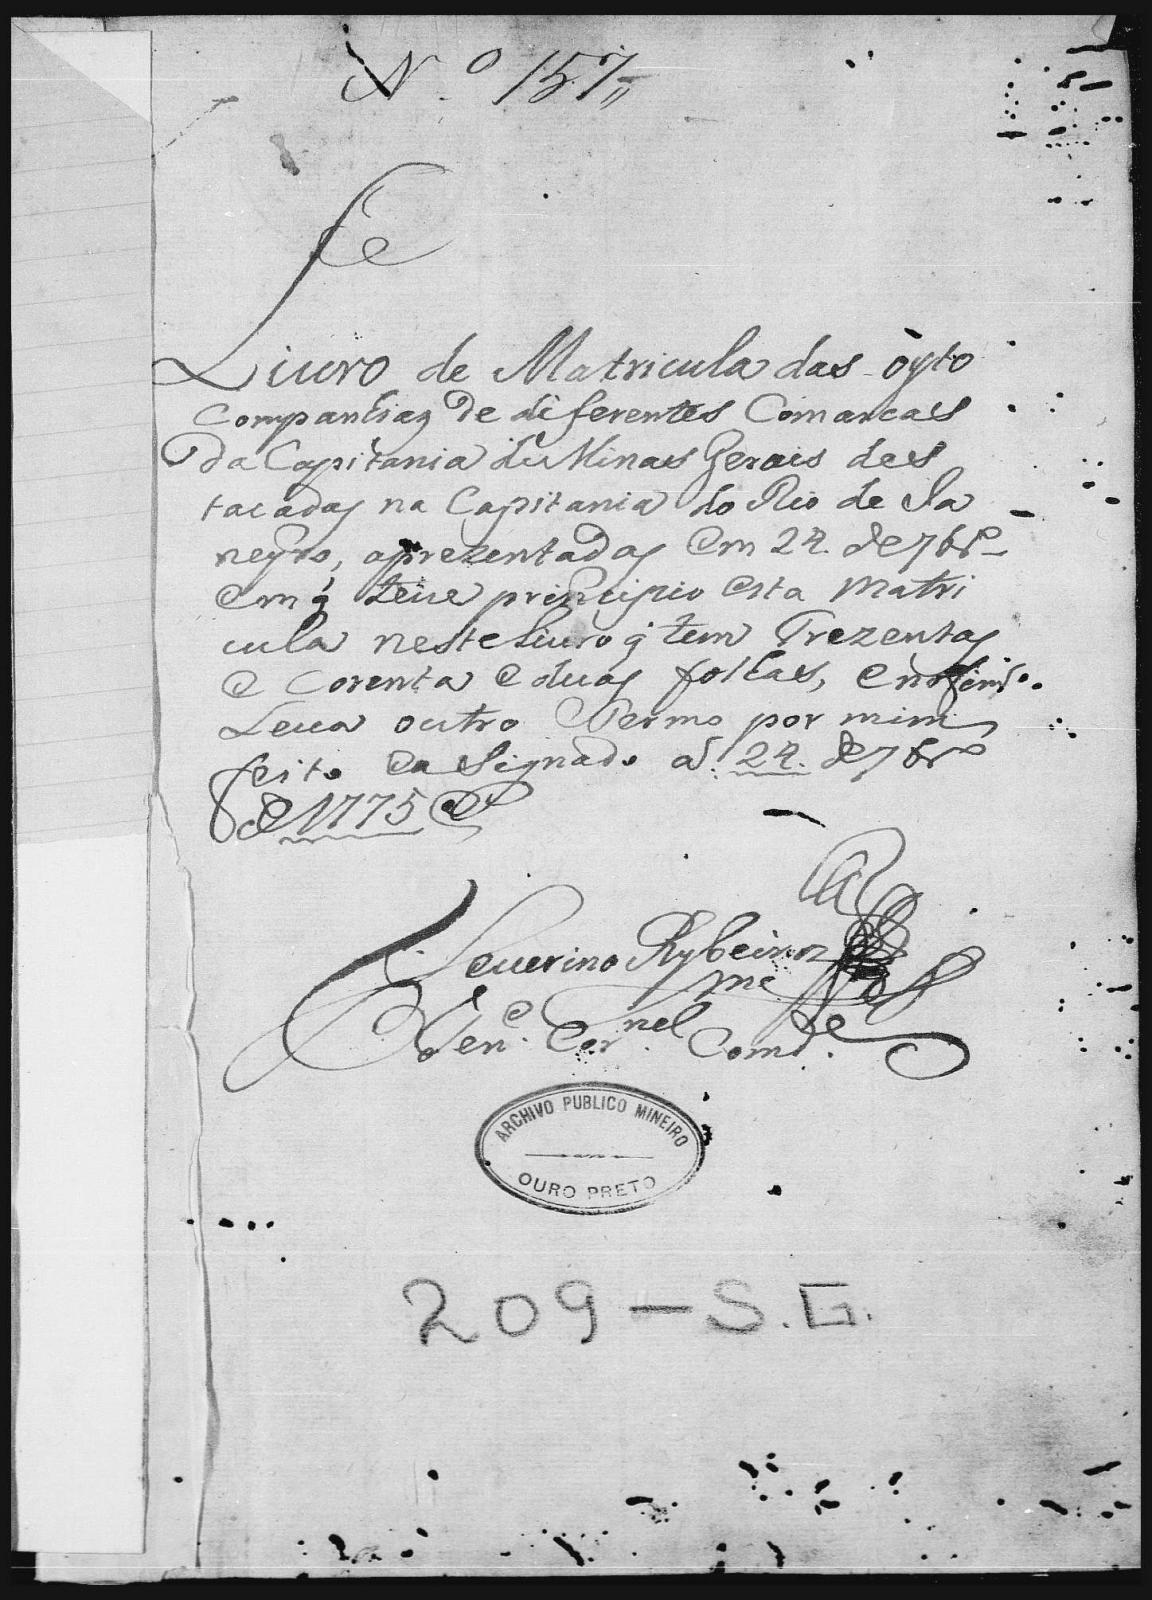 N.º 157
Liuro de Matricula das oyto
Companhias de diferentes Comarcas
da Capitania de Minas Gerais des
tacadas na Capitania do Rio de Ja
neyro, aprezentadas em 24. de 7brº
em q̃ teue principio esta Matri
cula neste Liuro q̃ tem Trezentas
e Corenta e duas folhas, e no fim
Leua outro Termo por mim
feito e a Signado a 24. de 7brº
de 1775
Seuerino Rybeiro
Tenᵉ. Corⁿᵉˡ. Comdᵉ.
ARCHIVO PUBLICO MINEIRO
OURO PRETO
209 - S.G.